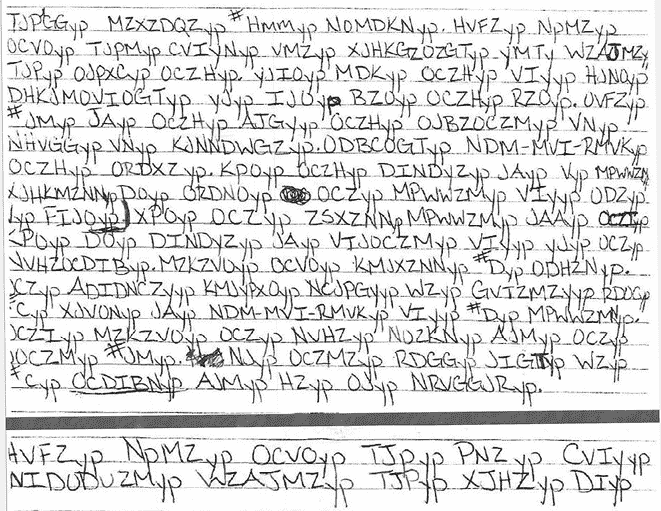 TJPGGyp MZXZDQZyp #Hmmyp NOMDKNyp. HVFZyp NpMZyp
OCVOyp TJPMyp CVIYNyp VMZyp XJHKGZOZGTyp YMTyp WZAJMZy
TJPyp OJPXCyp OCZHyp. YJIOyp MDKyp OCZHyp VIYyp HJNOyp
DHKJMOVIOGTyp YJyp IJOyp BZOyp OCZHyp RZOyp. OVFZyp
#JMyp JAyp OCZHyp AJGYyp OCZHyp OJBZOCZMyp VNyp
NHVGGyp VNyp KJNNDWGZyp. ODBCOGTyp NDM-MVI-RMVKyp
OCZHyp ORDXZyp. KPOyp OCZHyp DINDYZyp JAyp Vyp MPWWZM
XJHKMZNNpDOyp ORDNOyp OCZyp MPWWZMyp VIYyp ODZyp
Vyp FIJOyp) XPOyp OCZyp ZSXZNNp MPWWZMyp JAAyp OCZIyp
KPOyp DOyp DINDYZyp JAyp VIJOCZMyp VIYyp YJyp OCZyp
NVHZOCDIByp. MZKZVOyp OCVOyp KMJXZNNyp #Dyp ODHZNyp.
OCZyp ADIDNCZYyp KMJYPXOyp NCJPGYyp WZyp GVTZMZYyp RDOCyp
#Cyp XJVONyp JAyp NDM-MVI-RMVKyp VIYyp #Dyp MPWWZMNyp.
OCZIyp MZKZVOyp OCZyp NVHZyp NOZKNyp AJMyp OCZyp
JOCZMyp #JMyp. NJyp OCZMZyp RDGGyp JIGTyp WZyp
#Cyp OCDIBNyp AJMyp HZyp OJyp NRVGGJRyp.
HVFZyp NpMZyp OCVOyp TJPyp PNZyp CVIYyp
NIDUDUZMyp WZAJMZyp TJPyp XJHZyp DIyp